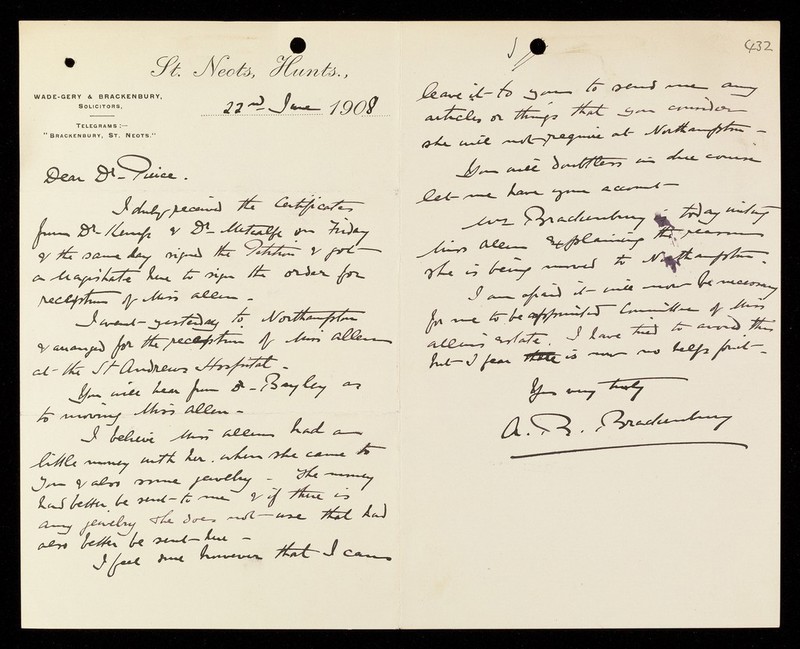 St. Neots, Hunts.,
WADE-GERY & BRACKENBURY,
SOLICITORS,
TELEGRAMS:—
"BRACKENBURY, ST. NEOTS."
22nd June 1908
Dear Dr. Pierce.
I duly received the Certificates
from Dr Kemp & Dr. Metcalfe on Friday
& the same day signed the Petition & got
a Magistrate here to sign the order for
reception of Miss Allen -
I went yesterday to Northampton
& arranged for the reception of Miss Allen
at the St Andrews Hospital -
You will hear from Dr. Bayley as
to moving Miss Allen -
I believe Miss Allen had a
little money with her when she came to
you & also some jewelry - The money
had better be sent to me & if there is
any jewelry she does not use that had
also better be sent here -
I feel sure however that I can
432
leave it to you to send me any
articles or things that you consider
she will not require at Northampton -
You will doubtless in due course
let me have your account -
Mrs Brackenbury is today writing
Miss Allen explaining the reason
she is being moved to Northampton.
I am afraid it will now be necessary
for me to be appointed Committee of Miss
Allen's estate. I have tried to avoid this
but I fear there is now no help for it -
Yrs very truly
A. R. Brackenbury